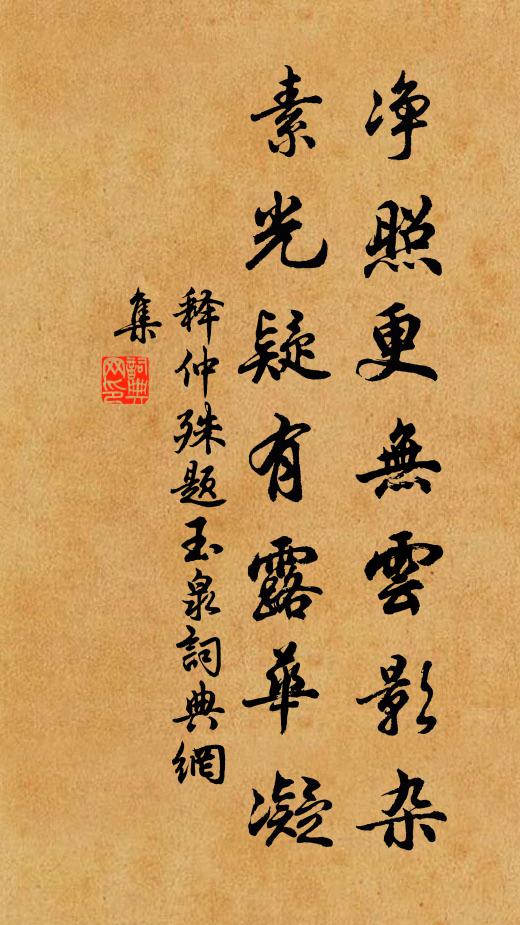 净照更無雲影杂
素光疑有露華凝
释仲殊题玉泉詞典網
集
詞典網印